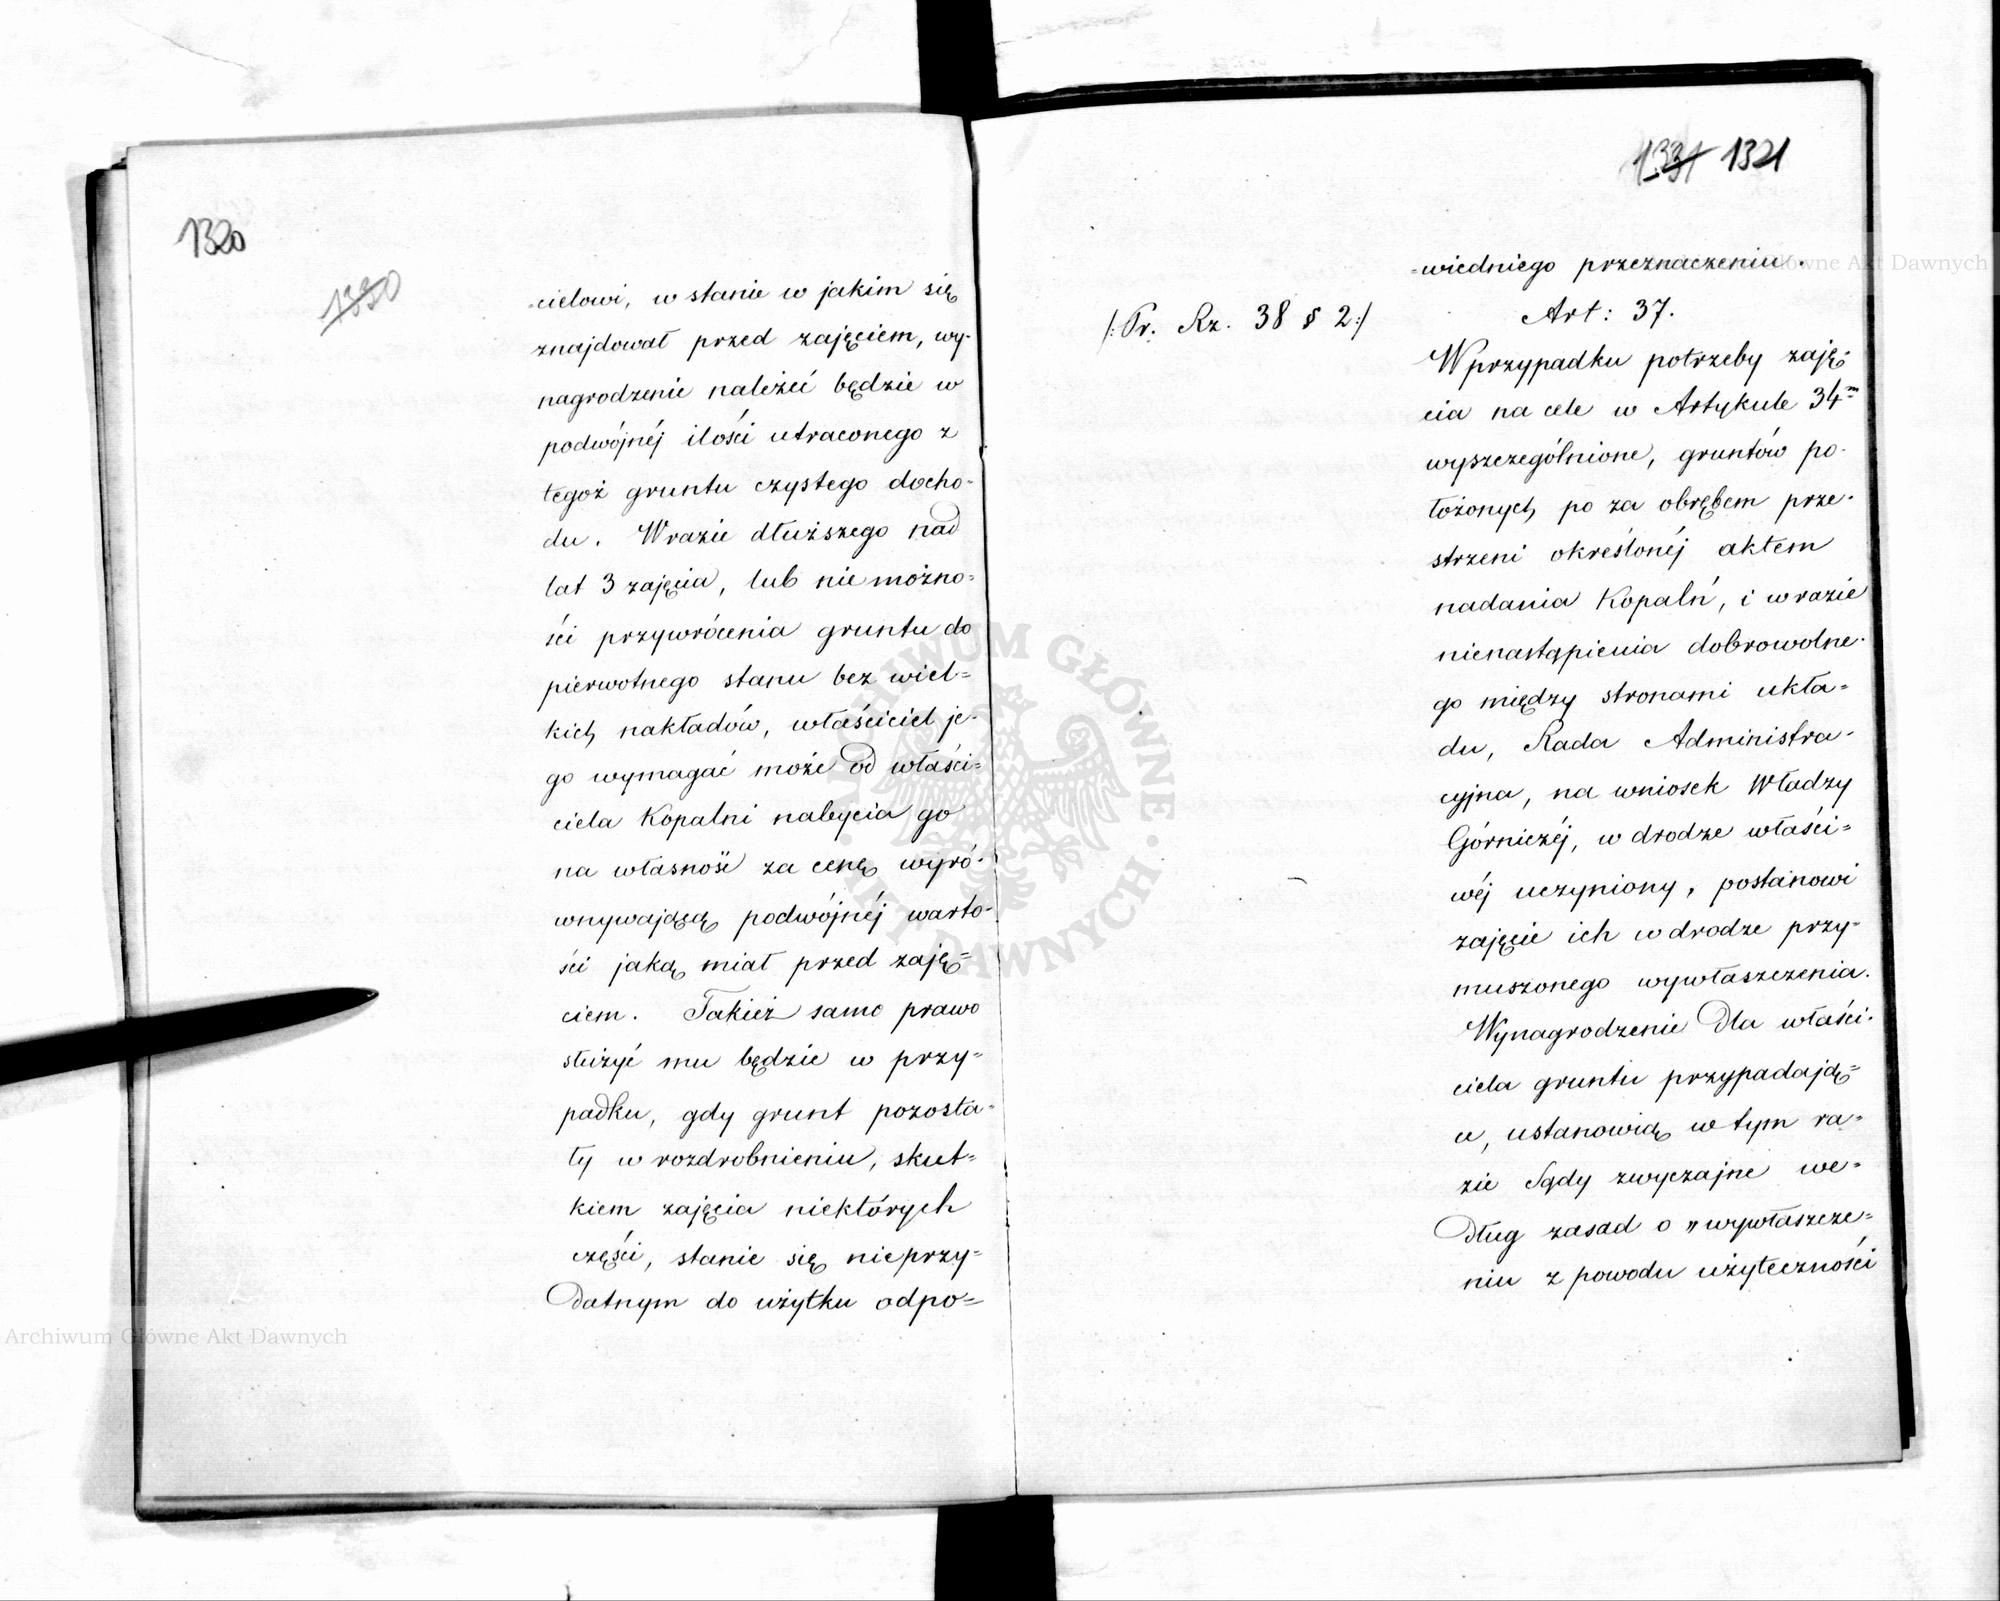 1320
1330
-cielowi, w stanie w jakim się
znajdował przed zajęciem, wy-
nagrodzenie należeć będzie w
podwójnéj ilości utraconego z
tegoż gruntu czystego docho-
du. W razie dłuższego nad
lat 3 zajęcia, lub niemożno-
ści przywrócenia gruntu do
pierwotnego stanu bez wiel=
kich nakładów, właściciel je-
go wymagać może od właści=
ciela Kopalni nabycia go
na własność za cenę wyró-
wnywającą podwójnéj warto-
ści jaką miał przed zaję=
ciem. Takież samo prawo
służyć mu będzie w przy=
padku, gdy grunt pozosta-
ły w rozdrobnieniu, skut=
kiem zajęcia niektórych
części, stanie się nieprzy=
datnym do użytku odpo=
1331 1321
=wiedniego przeznaczeniu.
/: Pr. Rz. 38 § 2:/
Art: 37.
W przypadku potrzeby zaję-
cia na cele w Artykule 34m
wyszczególnione, gruntów po-
łożonych po za obrębem prze-
strzeni określonéj aktem
nadania Kopalń, i w razie
nienastąpienia dobrowolne-
go między stronami ukła=
du, Rada Administra-
cyjna, na wniosek Władzy
Górniczéj, w drodze właści=
wéj uczyniony, postanowi
zajęcie ich w drodze przy-
muszonego wywłaszczenia.
Wynagrodzenie dla właści-
ciela gruntu przypadają=
ce, ustanowią w tym ra=
zie Sądy zwyczajne we=
dług zasad o „wywłaszcze=
niu z powodu użyteczności
ARCHIWUM GŁÓWNE AKT DAWNYCH
Archiwum Główne Akt Dawnych
Archiwum Główne Akt Dawnych